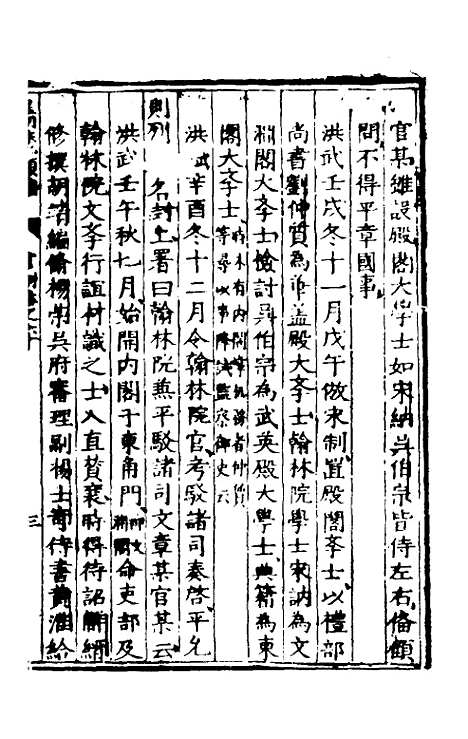 官某雖設殿閣大學士如宋納吳伯宗皆侍左右俻顧
問不得平章國事
洪武壬戌冬十一月戊午倣宋制置殿閣李士以禮部
尚書劉仲質為華盖殿大李士翰林院學士宋訥為文
淵閣大李士檢討吳伯宗為武英殿大學士典籍為東
閣大李士
洪武辛酉冬十二月令翰林院官考駁諸司奏啓平允
則列名封上署曰翰林院兼平駁諸司文章某官某云
洪武壬午秋九月始開內閣于東角門命吏部及
翰林院文李行誼材識之士入直贊襄時得待詔解縉
修撰胡編脩楊榮吳府審理副楊士竒侍書黄淮給
三